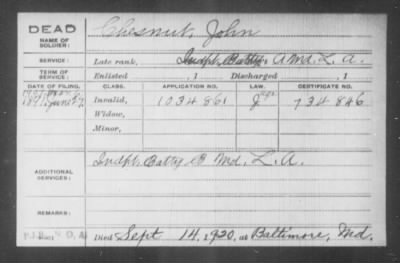 DEAD
NAME OF SOLDIER: Chesnut, John
SERVICE: Late rank, Indpt. Batty. A Md. L. A.
TERM OF SERVICE: Enlisted , 1 Discharged , 1
DATE OF FILING. CLASS. APPLICATION NO. LAW. CERTIFICATE NO.
1891, Invalid, 1034861 734846
Widow,
Minor,
ADDITIONAL SERVICES: Indpt. Batty B Md. L. A.
REMARKS:
Died Sept 14, 1920, at Baltimore, Md.